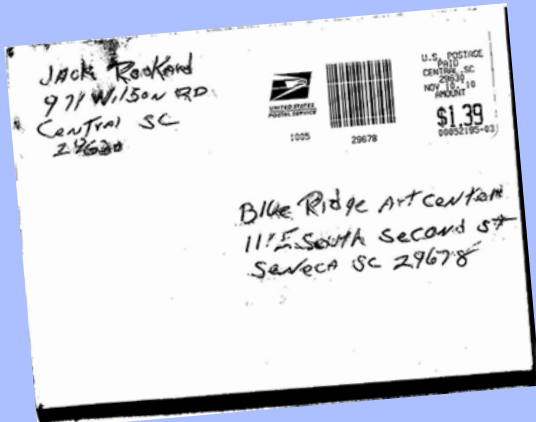 JACK Rookard
971 Wilson RD
Central SC
29630
UNITED STATES
POSTAL SERVICE
1005
29678
U.S. POSTAGE
PAID
CENTRAL, SC
29630
NOV 10, 10
AMOUNT
$1.39
00052195-03
Blue Ridge Art Center
111 E South Second St
Seneca SC 29678